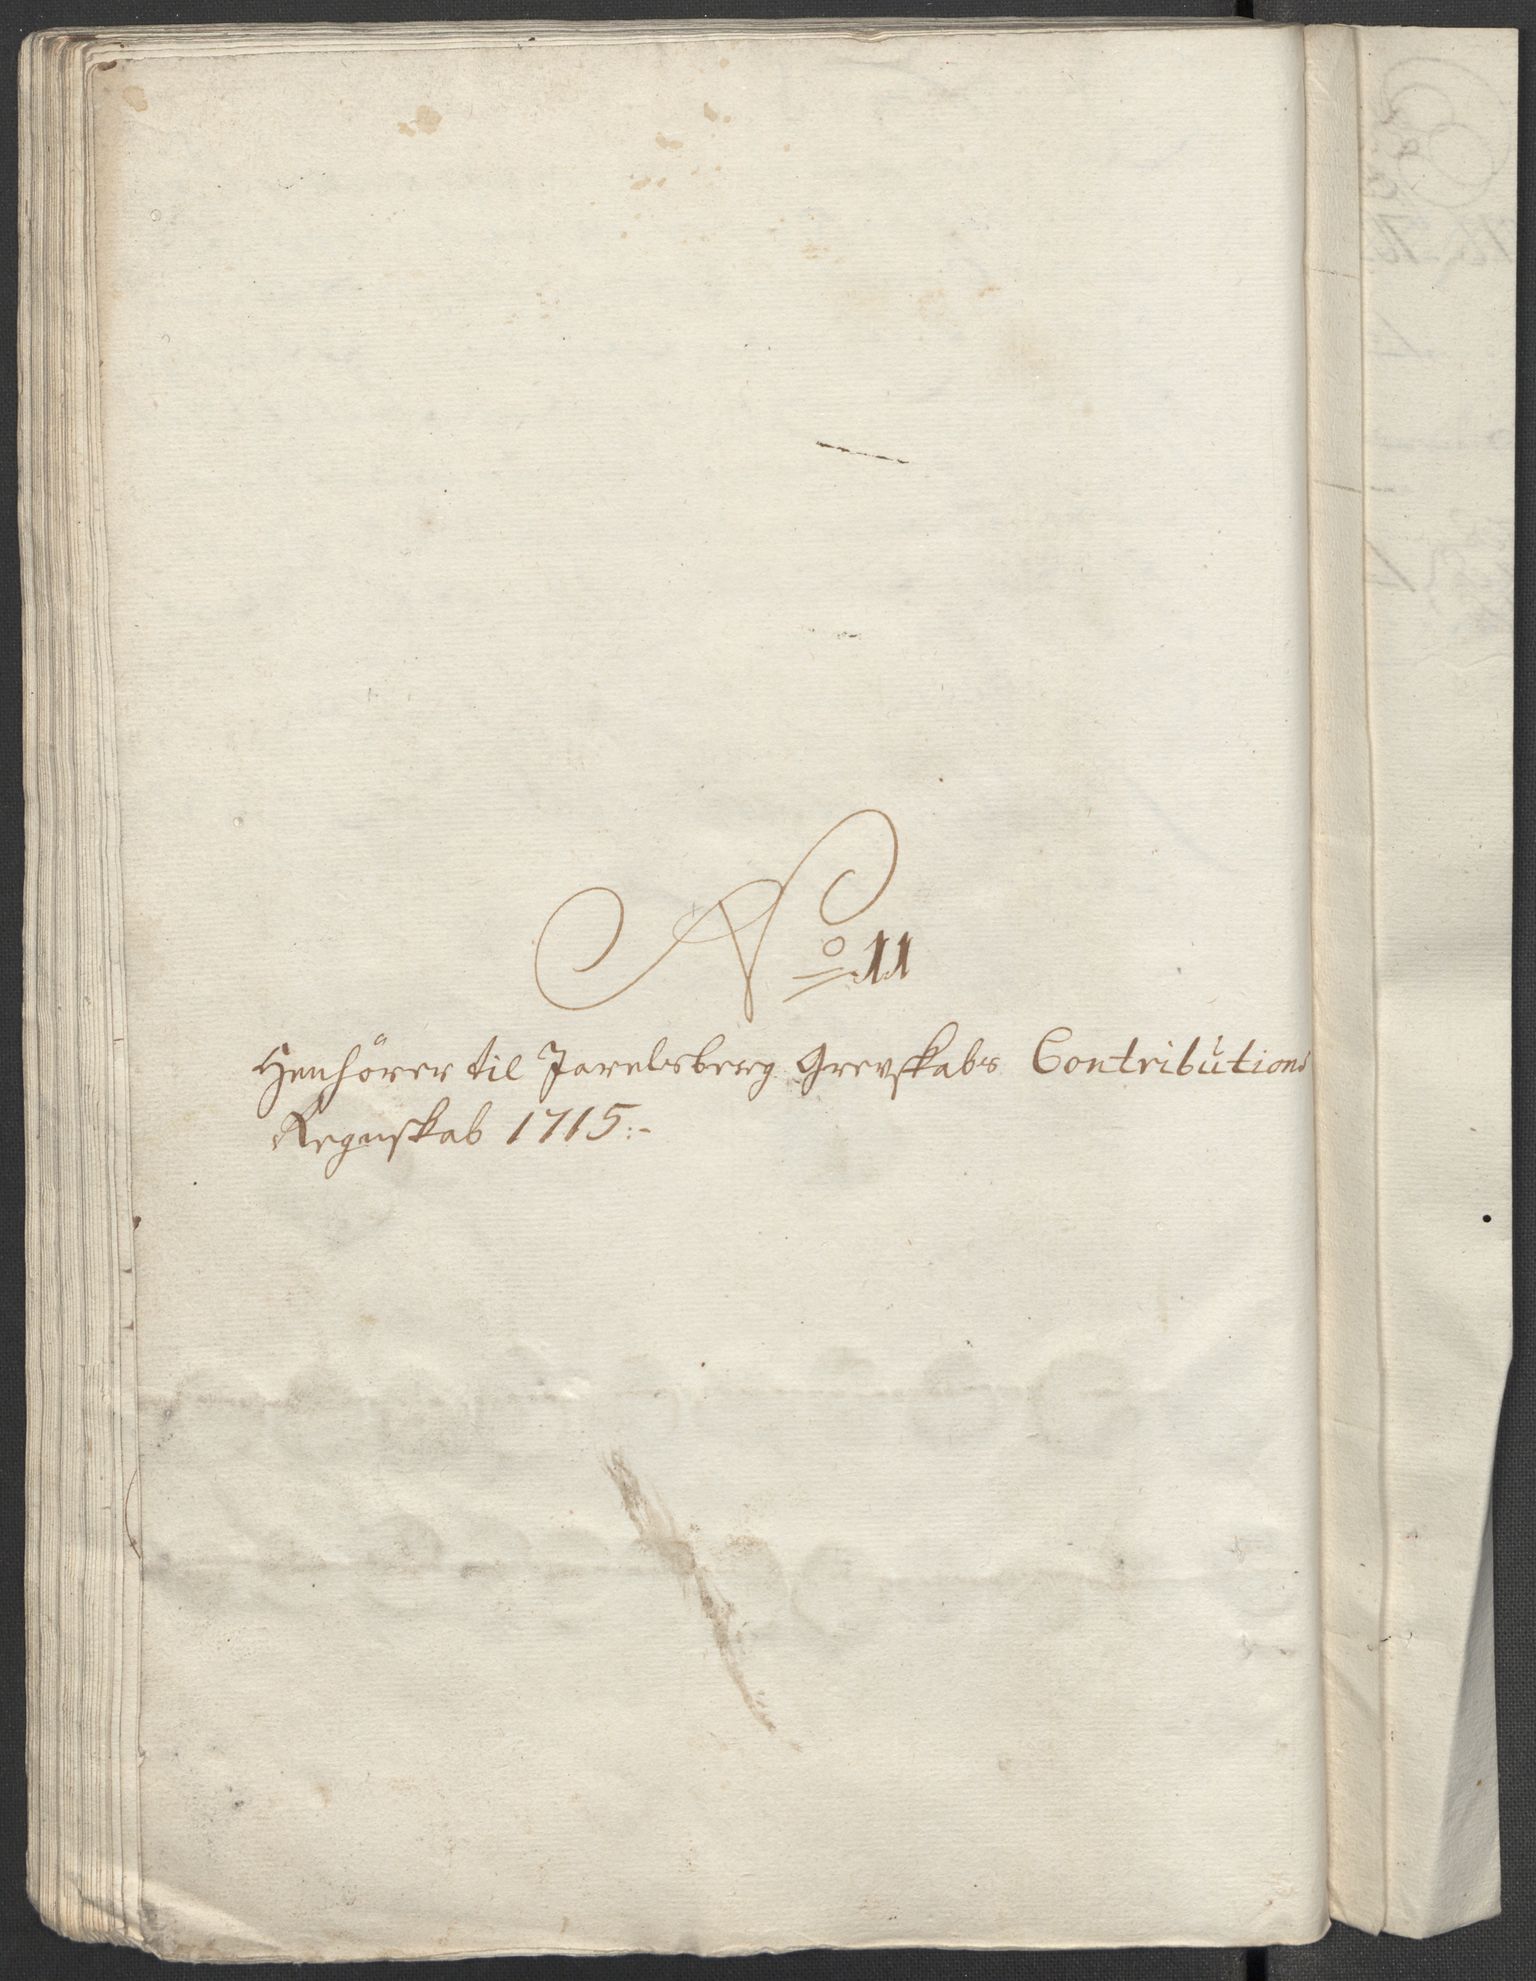 No 11
Henhörer til Jarelsberg Grevskabs Contributions
Regnskab 1715:-